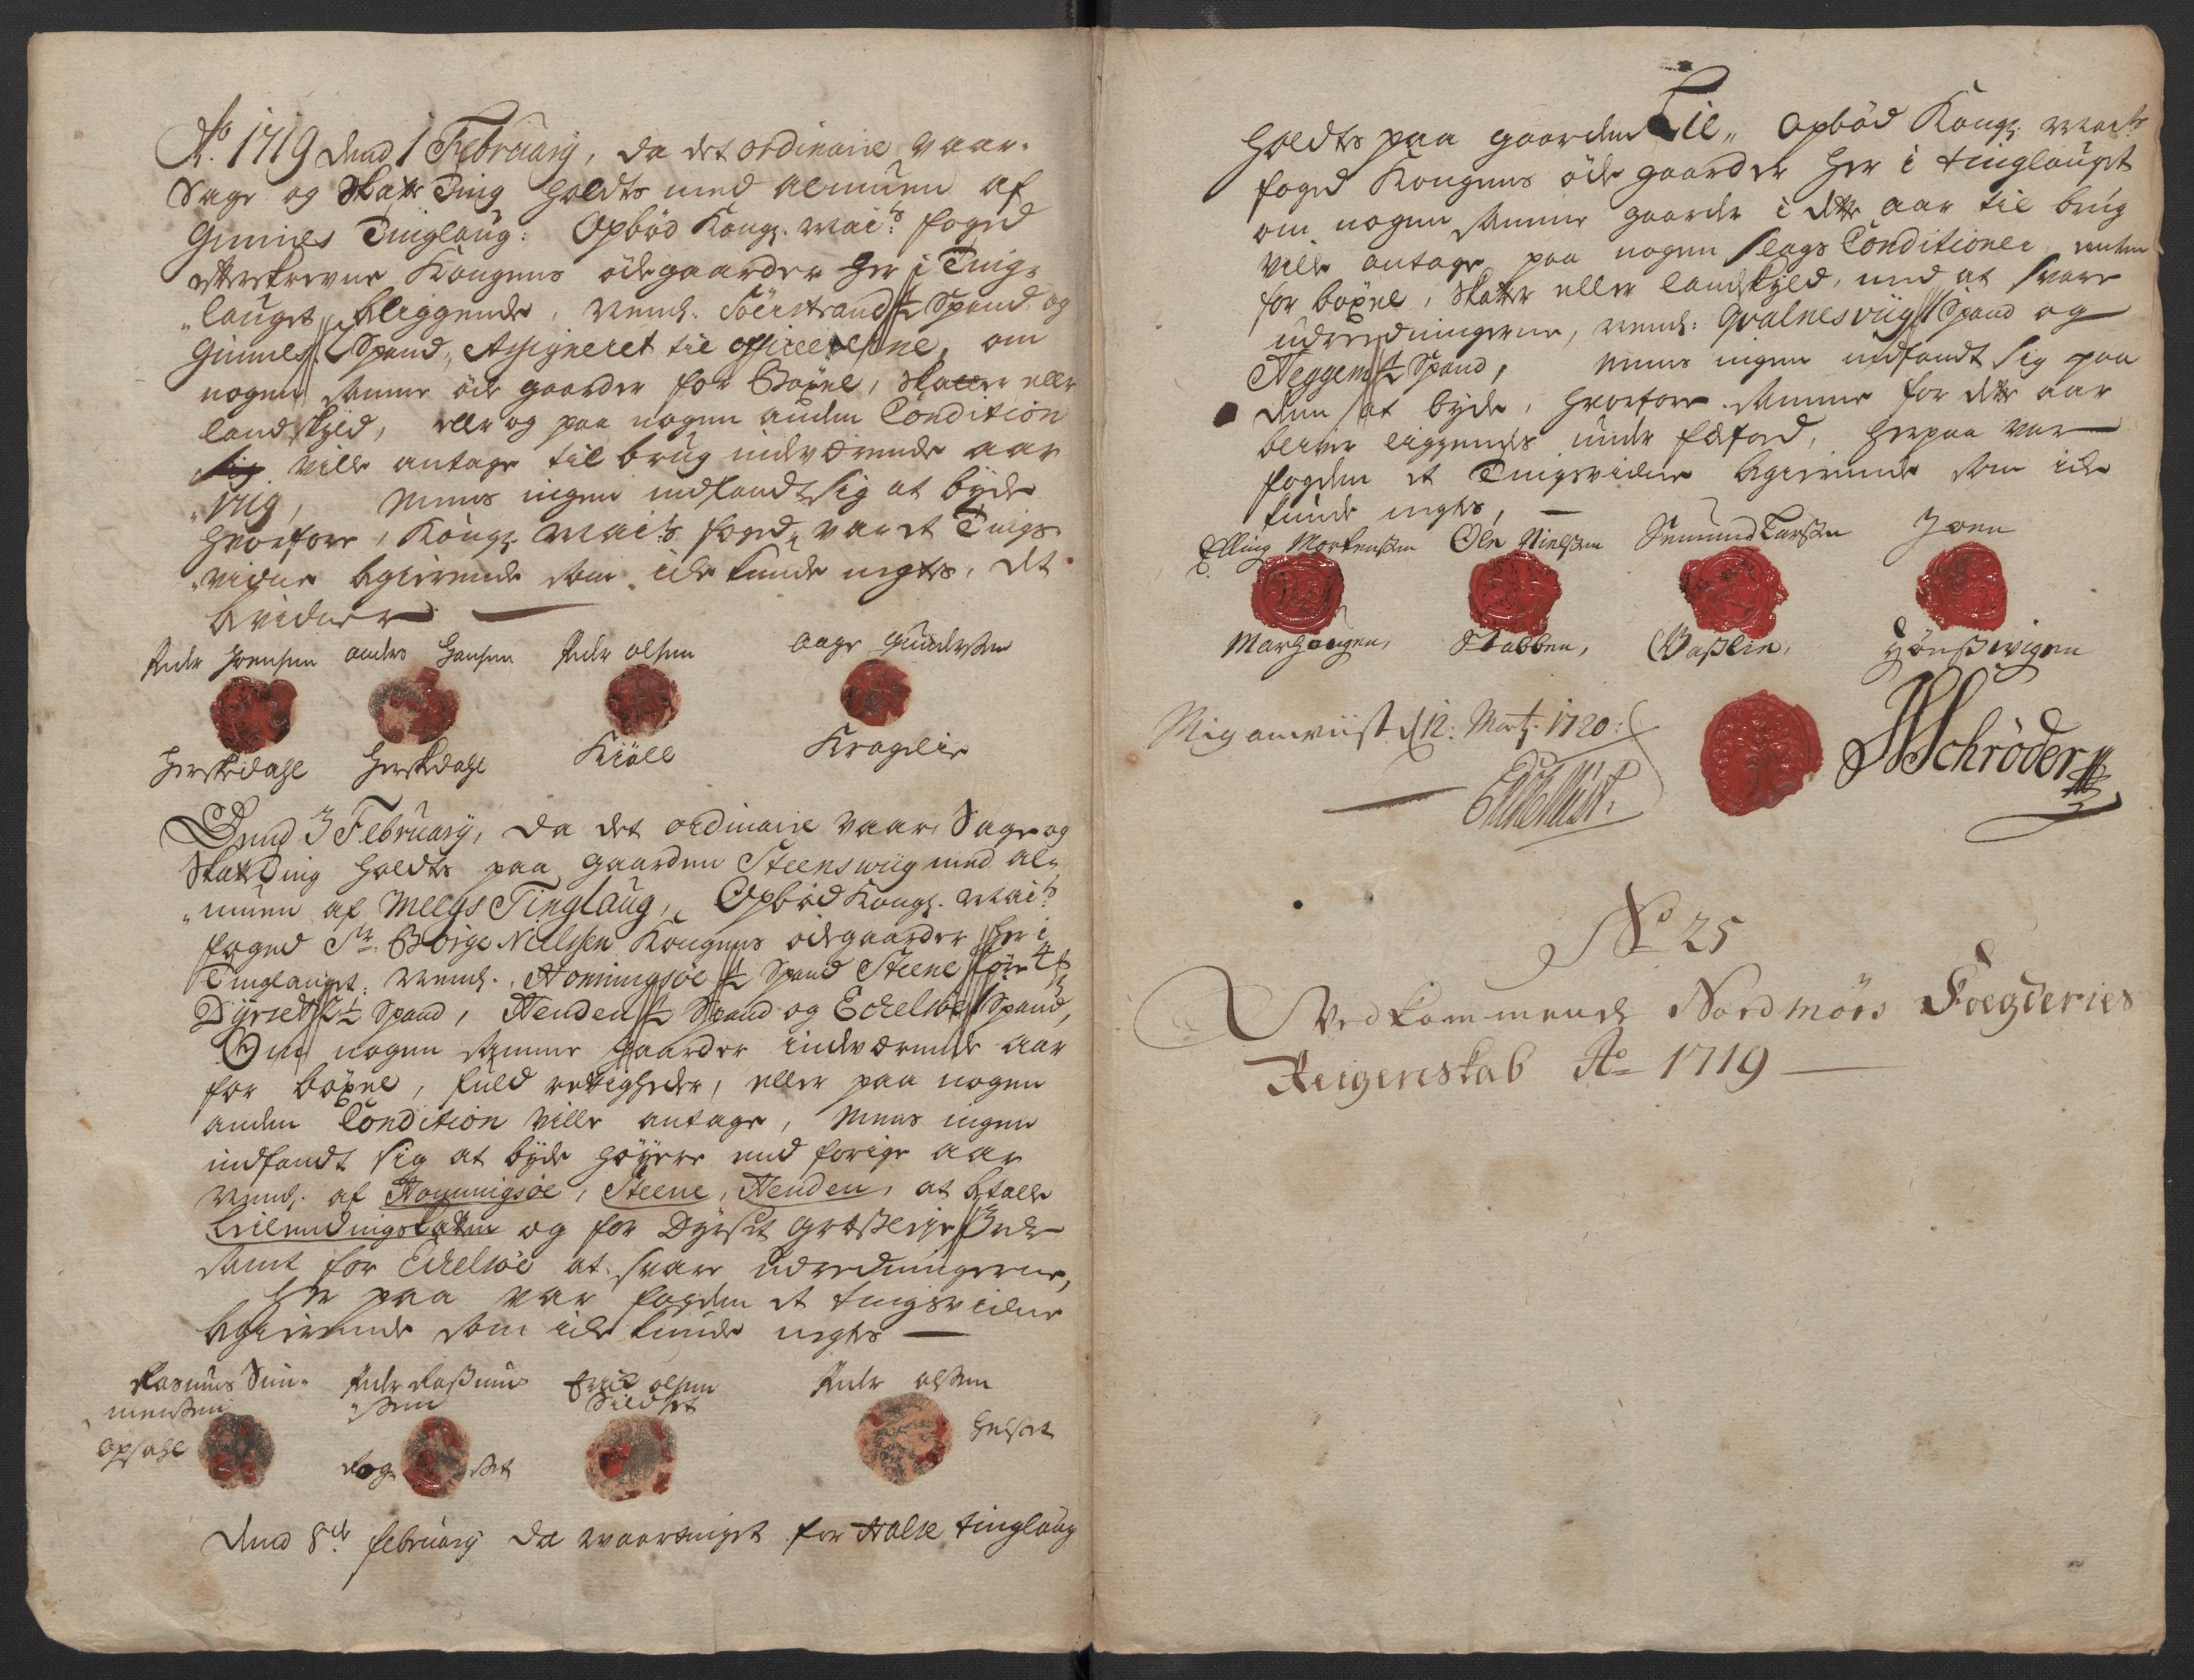 Ao. 1719 dend 1 February, da det ordinaire vaar-
Sage og Skatte Ting holdts med almuen af
Gimnes Tinglaug: Opbød Kongl. Mai:ts foged
efterskrevne Kongens ödegaarder her i Ting-
lauget beliggende, nemb: Söerstrand 1/2 Spand og
Gimnes 1 Spand, Assigneret til officererne, om
nogen samme öde gaarder for Böxel, Skatter eller
landskyld, eller og paa nogen anden Condition
ville antage til brug indværende aar
mens ingen indfandt sig at byde
hvorfore Kongl. Mai:ts foged var et Tings-
vidne begierende som icke kunde negtes, det
bevidner
Peder Joensen anders Hansen Peder olsen aage Gundersen
Herskedahl Herskedahl Kiöll Kragelie
Dend 3 February, da det ordinaire vaar, Sage og
Skatte Ting holdts paa gaarden Steenswiig med al-
muen af Meelgs Tinglaug, Opbød Kongl. Mai:ts
foged Sr. Börge Nielssen Kongens ödegaarder her i
Tinglauget: nemb: Honningsöe 1/2 Spand Steene
Dyrset 2 1/2 Spand, Henden 1/2 Spand og Eckelsöe 1 Spand,
Om nogen samme gaarder indværende aar
for böxel, fuld rettigheder, eller paa nogen
anden Condition ville antage, mens ingen
indfandt sig at byde höyere end forige aar
nembl. af Honningsöe, Steene, Henden, at betalle
Leilendingskatten og for Dyrset græsleje 3
samt for Eckelsöe at svare udredningerne,
her paa var fogden et tingsvidne
begierende som icke kunde negtes
Rasmus Sim- Peder Rasmus Erick olsen Peder olsen
mensen sen Sildset
opsahl Rog set Helset
Dend 8de february da waartinget for Halse tinglaug
holdts paa gaarden Lie, Opbød Kongl. Mai:ts
foged Kongens öde gaarder her i tinglauget
om nogen samme gaarder i dette aar til brug
ville antage paa nogen slags Conditioner, enten
for böxel, Skatter eller landskyld, end at svare
udredningerne, nembl: Qvalnesviig 1 Spand og
Heggem 1/2 Spand, mens ingen indfandt sig paa
dem at byde, hvorfore samme for dette aar
bliver liggendes under fæfod, herpaa var
fogden et Tingsvidne begierende som icke
kunde negtes,
Elling Mortensen Ole Nielsen Semund Larsen Joen
Marhougen, Stabben, Vaslie, Hönsvigen
Mig anviist d 12: Marti: 1720:
Schröder
No 25
Vedkommende Nordmörs Foegderies
Reigenskab Ao 1719